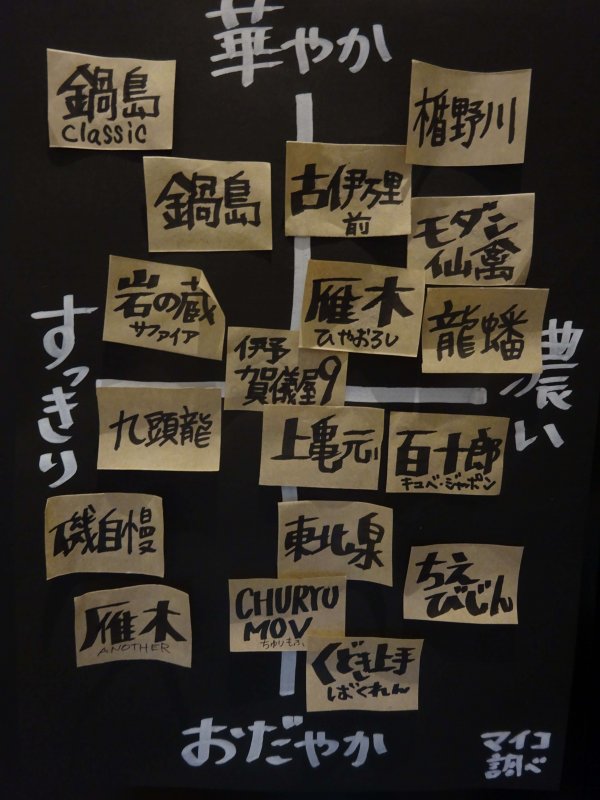 華やか
鍋島
classic
楯野川
鍋島
古伊万里
前
モダン
仙禽
岩の蔵
サファイア
雁木
ひやおろし
龍蟠
すっきり
濃い
伊予
賀儀屋9
九頭龍
上亀元
百十郎
キュベ・ジャポン
磯自慢
東北泉
ちえ
びじん
雁木
ANOTHER
CHURYO
MOV
ちゅりもぶ
くどき上手
ばくれん
おだやか
マイコ
調べ